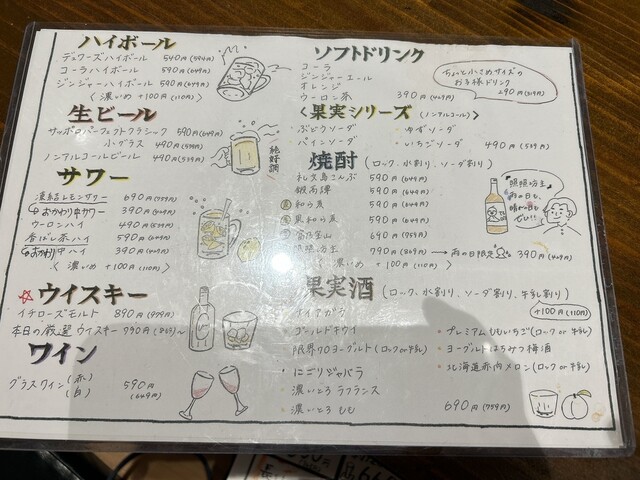 ハイボール
デュワーズハイボール 540円(594円)
コーラハイボール 590円(649円)
ジンジャーハイボール 590円(649円)
〈 濃いめ +100円(110円) 〉
生ビール
サッポロパーフェクトクラシック 590円(649円)
小グラス 490円(539円)
ノンアルコールビール 490円(539円)
絶好調
サワー
凍結レモンサワー 690円(759円)
おかわり中サワー 390円(429円)
ウーロンハイ 490円(539円)
香ばし茶ハイ 590円(649円)
おかわり中ハイ 390円(429円)
〈 濃いめ +100円(110円) 〉
ウイスキー
イチローズモルト 890円(979円)
本日の厳選ウイスキー 790円(869円)〜
ワイン
グラスワイン(赤)
(白)
590円
(649円)
ソフトドリンク
コーラ
ジンジャーエール
オレンジ
ウーロン茶 390円(429円)
ちょっと小さめサイズの
お子様ドリンク
290円(319円)
〈果実シリーズ (ノンアルコール)〉
ぶどうソーダ ・ゆずソーダ
・パインソーダ ・いちごソーダ 490円(539円)
焼酎 (ロック、水割り、ソーダ割り)
礼文島こんぶ 590円(649円)
鍛高譚 590円(649円)
和ら麦 590円(649円)
黒和ら麦 590円(649円)
富乃宝山 640円
照照坊主 790円(869円) → 雨の日限定 390円(429円)
濃いめ +100円(110円)
照照坊主
雨の日も
晴れの日も
果実酒 (ロック、水割り、ソーダ割り、牛乳割り)
+100円(110円)
ゴールドキウイ
限界クロヨーグルト(ロックor牛乳)
・にごりジャバラ
・濃いとろラフランス
・濃いとろもも
・プレミアムももいちご(ロックor牛乳)
・ヨーグルトはちみつ梅酒
・北海道赤肉メロン(ロックor牛乳)
690円(759円)